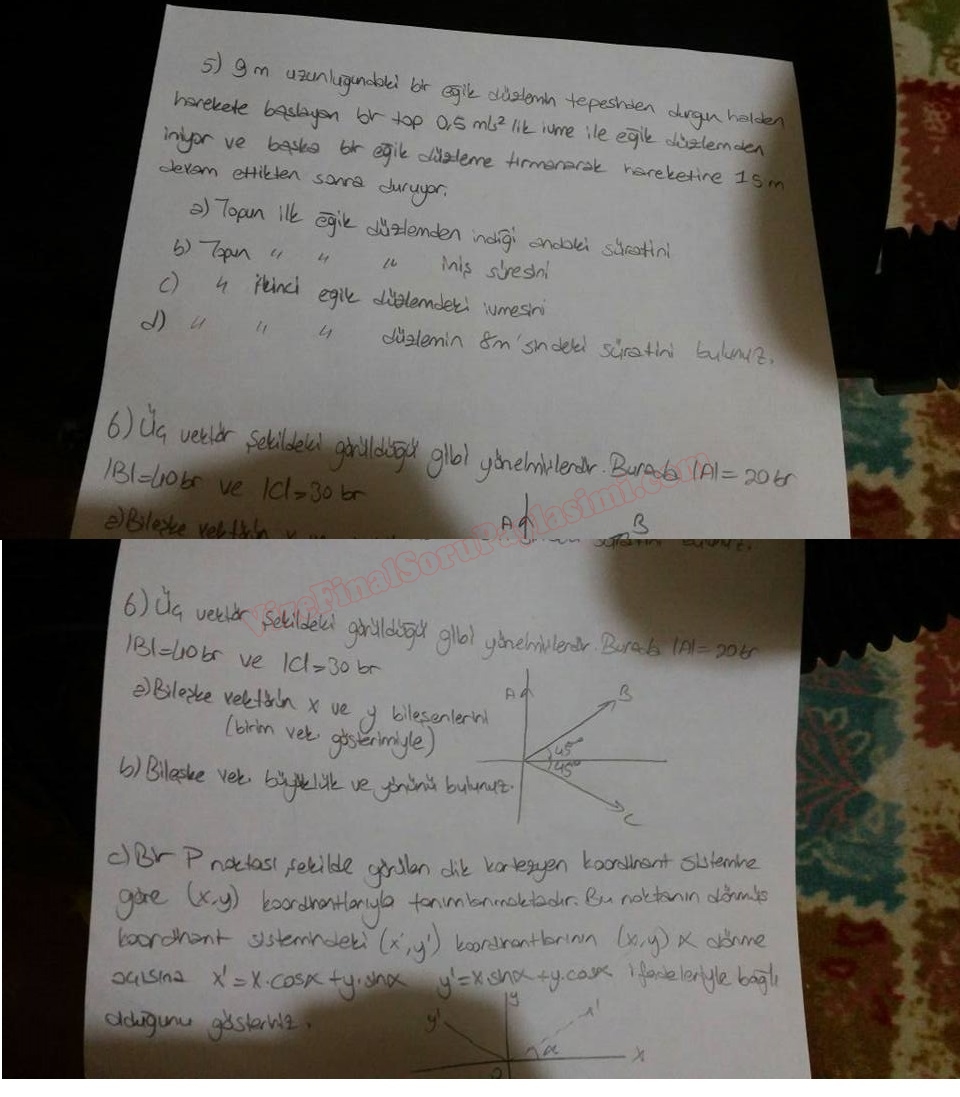 5) 9 m uzunluğundaki bir eğik düzlemin tepesinden durgun halden
harekete başlayan bir top 0,5 m/s² lik ivme ile eğik düzlemden
iniyor ve başka bir eğik düzleme tırmanarak hareketine 15 m
devam ettikten sonra duruyor.
a) Topun ilk eğik düzlemden indiği andaki süratini
b) Topun " " " iniş süresini
c) " ikinci eğik düzlemdeki ivmesini
d) " " " düzlemin 8m'sindeki süratini bulunuz.
6) Üç vektör şekildeki görüldüğü gibi yönelmişlerdir. Burada |A|= 20 br
|B|=40 br ve |C|=30 br
a) Bileşke vektörün x
A B
6) Üç vektör şekildeki görüldüğü gibi yönelmişlerdir. Burada |A|= 20 br
|B|=40 br ve |C|=30 br
a) Bileşke vektörün x ve y bileşenlerini
(birim vek. gösterimiyle)
b) Bileşke vek. büyüklük ve yönünü bulunuz.
A B
45°
45°
C
c) Bir P noktası, şekilde görülen dik kartezyen koordinant sistemine
göre (x,y) koordinantlarıyla tanımlanmaktadır. Bu noktanın dönmüş
koordinant sistemindeki (x',y') koordinantlarının (x,y) α dönme
açısına x'=x.cosα+y.sinα y'=x.sinα+y.cosα ifadeleriyle bağlı
olduğunu gösteriniz.
y' y x'
α x
O
VizeFinalSoruPaylasimi.com